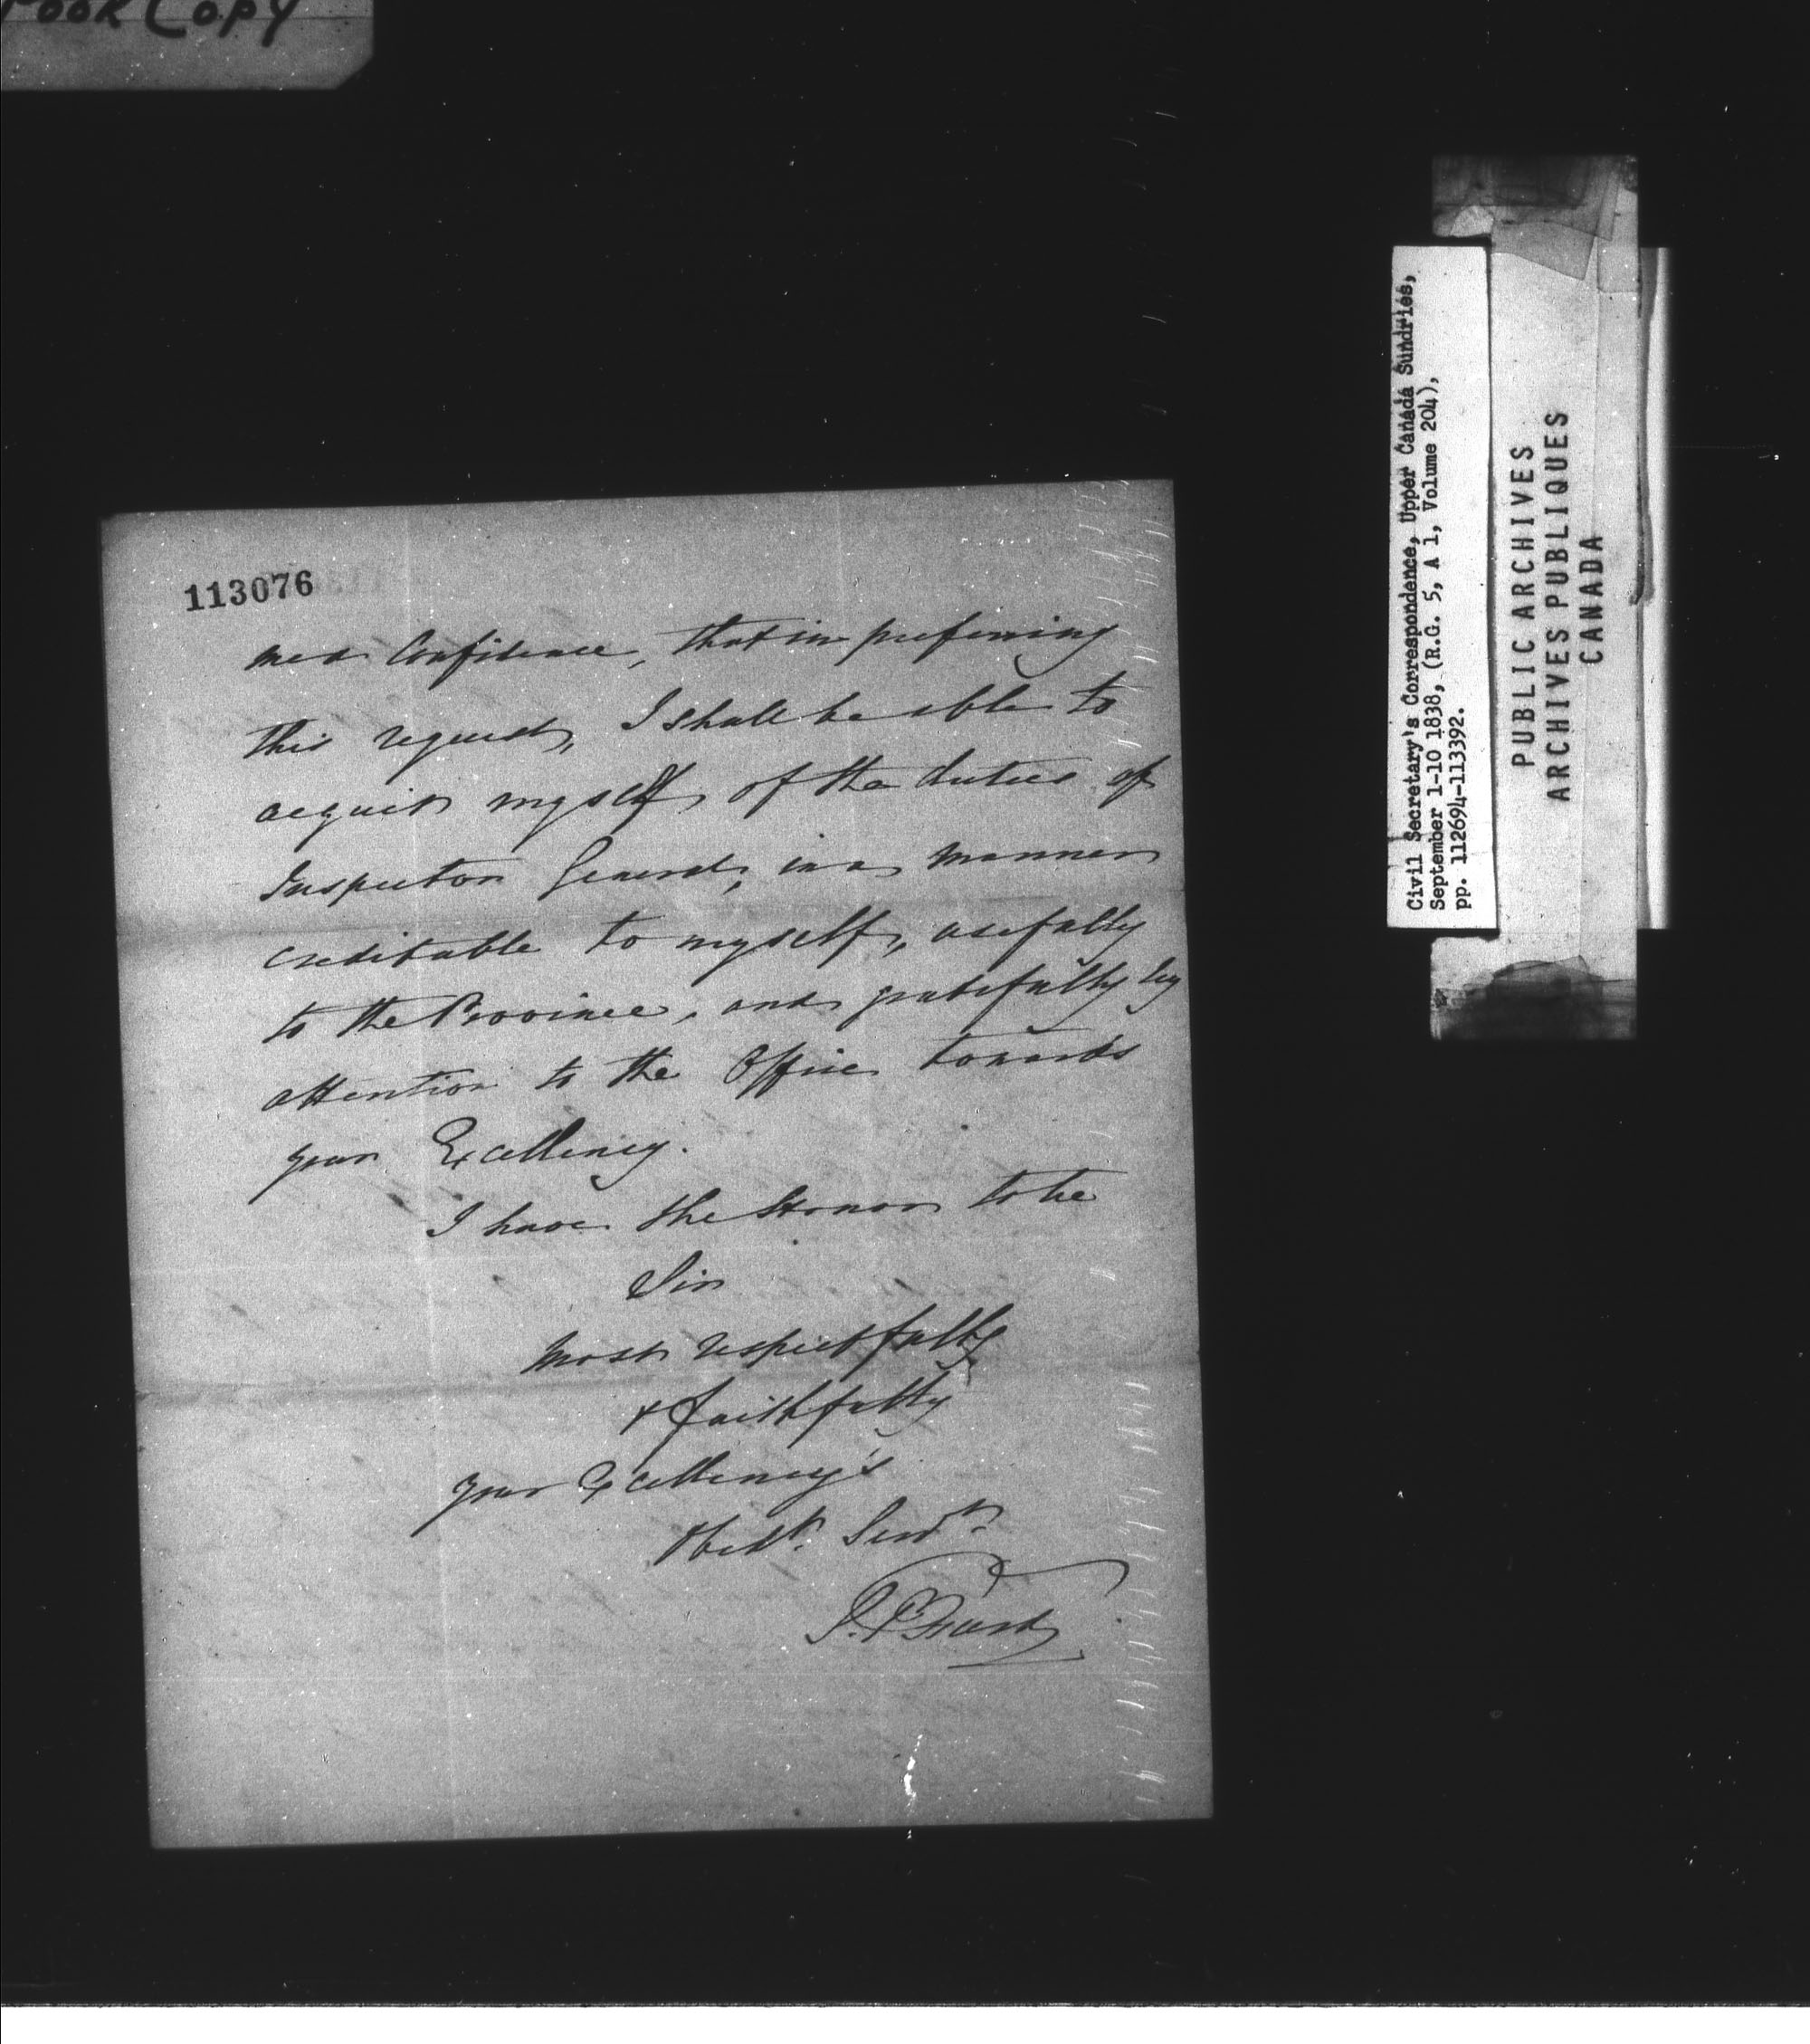 Poor Copy
113076
me a Confidence, that in preferring
this request, I shall be able to
acquit myself, of the duties of
Inspector General, in a manner
creditable to myself, usefully
to the Province, and gratefully by
attention to the Office towards
your Excellency.
I have the Honor to be
Sir
most respectfully
& faithfully
your Excellency's
Obedt. Servt.
Civil Secretary's Correspondence, Upper Canada Sundries,
September 1-10 1838, (R.G. 5, A 1, Volume 204),
pp. 112694-113392.
PUBLIC ARCHIVES
ARCHIVES PUBLIQUES
CANADA